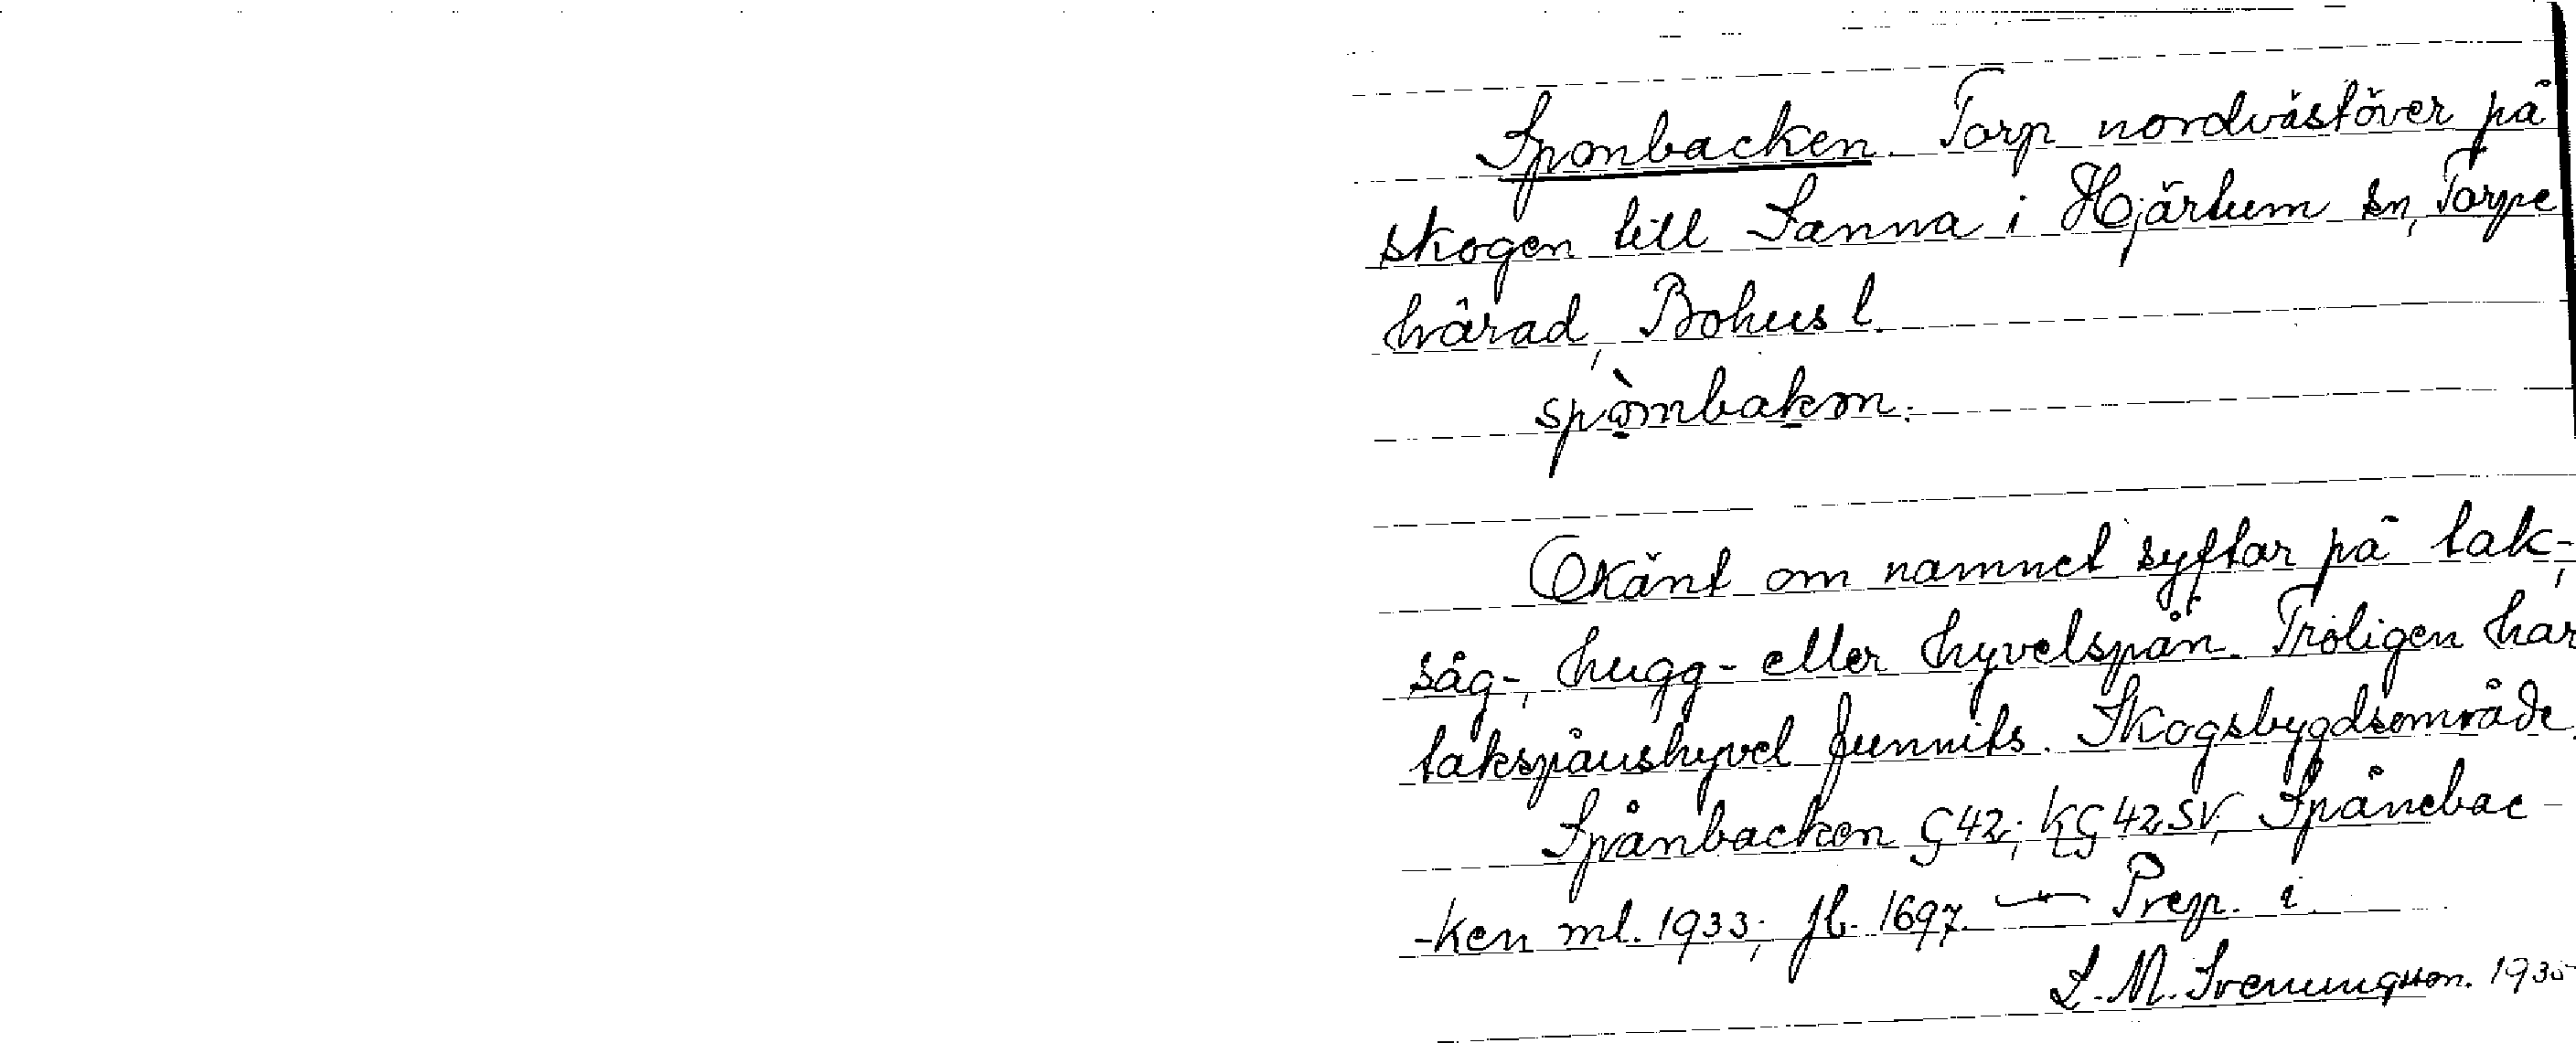 Sponbacken. Torp nordväståver på
skogen till Sanna i Hjärtum sn, Torpe
härad, Bohus l.
spòmbakɷn.
Okänt om namnet syftar på tak-,
såg-, hugg- eller hyvelspån. Troligen har
takspånshyvel funnits. Skogsbygdsområde.
Spånbacken G42; KG42SV, Spånebac-
-ken ml. 1933; jb. 1697. — Prep. i.
L. M. Svenungsson. 1935